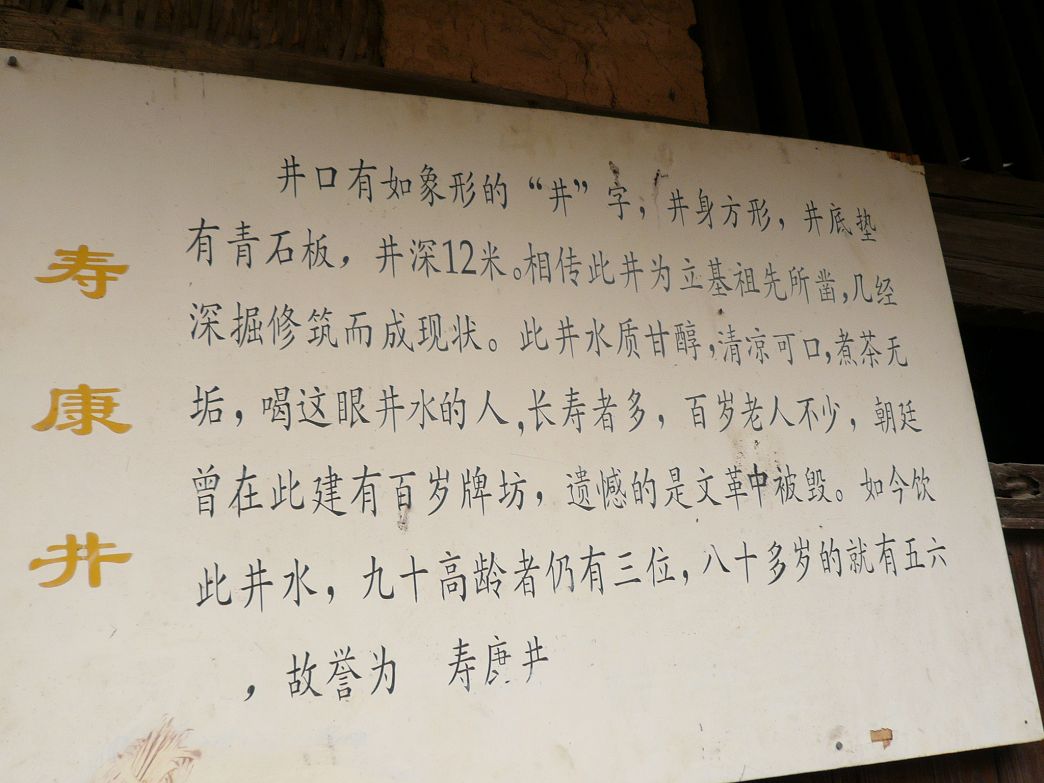 寿康井
井口有如象形的“井”字，井身方形，井底垫
有青石板，井深12米。相传此井为立基祖先所凿，几经
深掘修筑而成现状。此井水质甘醇，清凉可口，煮茶无
垢，喝这眼井水的人，长寿者多，百岁老人不少，朝廷
曾在此建有百岁牌坊，遗憾的是文革中被毁。如今饮
此井水，九十高龄者仍有三位，八十多岁的就有五六
，故誉为 寿康井